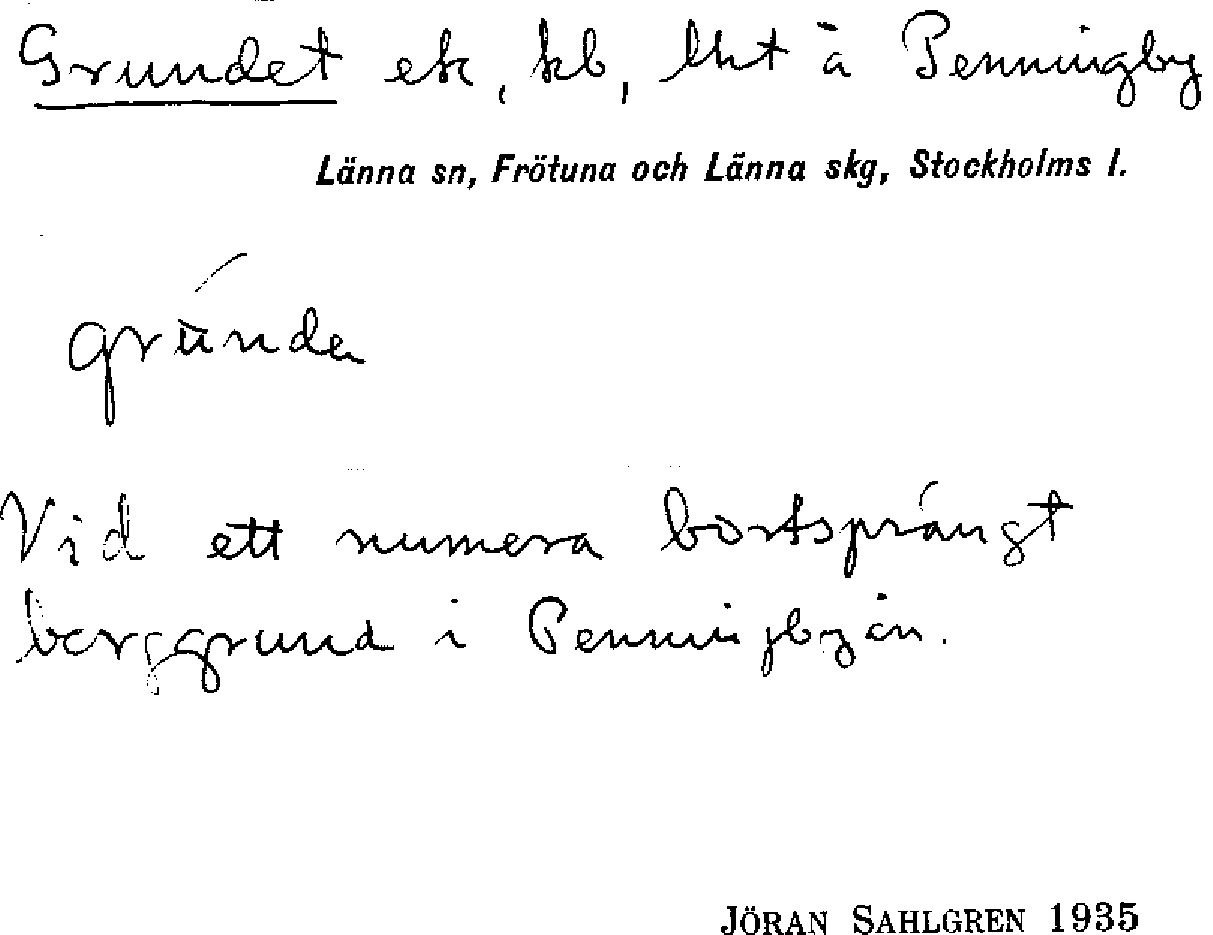 Grundet ek, kb, lht å Penningby
Länna sn, Frötuna och Länna skg, Stockholms l.
grúnda
Vid ett numera bortsprängt
berggrund i Penningbyån.
JÖRAN SAHLGREN 1935